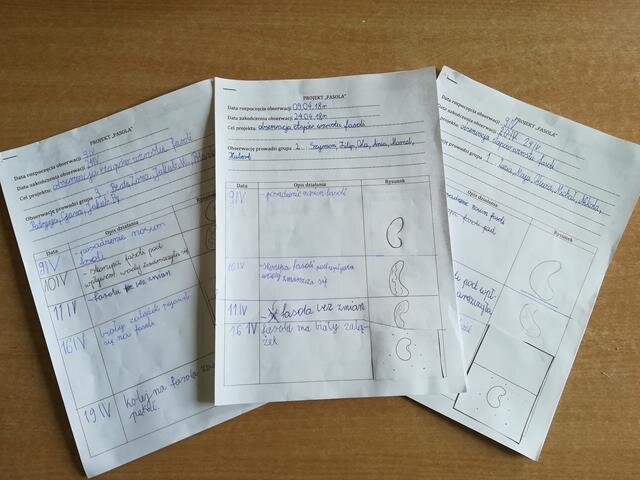 PROJEKT „FASOLA”
Data rozpoczęcia obserwacji 9 IV
Data zakończenia obserwacji 24 IV
Cel projektu: obserwacja etapów wzrostu fasoli
Obserwację prowadzi grupa 3.
Data Opis działania
9 IV - posadzenie nasion
fasoli
10 IV - skorupa fasoli pod
wpływem wody zmarszczyła się
11 IV - fasola bez zmian
16 IV biały zalążek pojawił
się na fasoli
19 IV kolejna fasola
pękać.
PROJEKT „FASOLA”
Data rozpoczęcia obserwacji 09.04.18r.
Data zakończenia obserwacji 24.04.18r.
Cel projektu: obserwacja etapów wzrostu fasoli
Obserwację prowadzi grupa 2. Szymon, Filip, Ola, Ania, Marcel,
Hubert
Data Opis działania Rysunek
9 IV - posadzenie nasion fasoli
10 IV - skorupa fasoli pod wpływem
wody zmarszcza się
11 IV - fasola bez zmian
16 IV fasola ma biały zalą-
żek
PROJEKT „FASOLA”
Data rozpoczęcia obserwacji
Data zakończenia obserwacji 24 IV
projektu: obserwacja etapów wzrostu fasoli
prowadzi grupa 1. Maja, Oliwia, Michał, Nikola,
Opis działania Rysunek
nasion fasoli
fasoli pod
pod